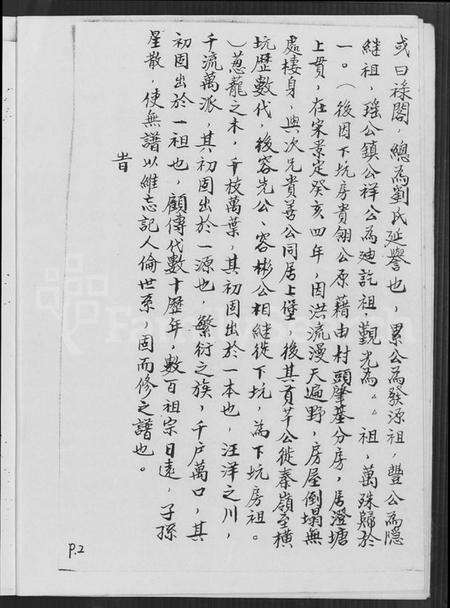 或曰祿閣，總為劉氏延譽也，累公為發源祖，豐公為隱
繼祖，瑶公鎮公祥公為廸訖祖，觀光為〃祖，萬殊歸於
一。（後因下坑房貴翎公原藉由村頭肇基分房，居澄塘
上貫，在宋景定癸亥四年，因洪流漫天遍野，房屋倒塌無
處棲身，與次兄貴善公同居上堡，後其貢芊公徙秦嶺至横
坑歷數代，後容先公、容彬公相繼徙下坑，為下坑房祖。
）葱蘢之木，千枝萬葉，其初固出於一本也，汪洋之川，
千流萬派，其初固出於一源也，繁衍之族，千户萬口，其
初固出於一祖也，顧傳代數十歷年，數百祖宗日遠，子孫
星散，使無譜以維忘記人倫世系，固而修之譜也。
旹
P.2